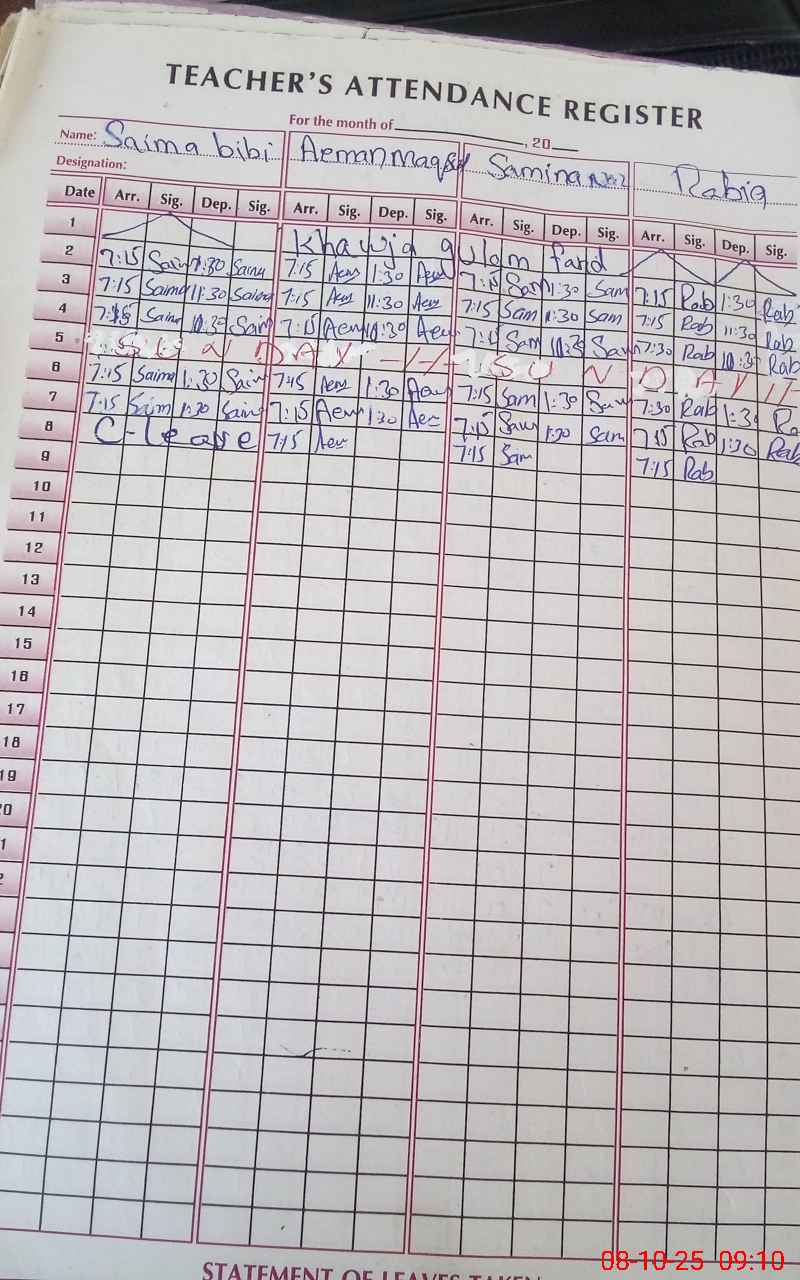 TEACHER'S ATTENDANCE REGISTER
For the month of , 20
Name: Saima bibi Aeman Samina Rabia
Designation:
Date Arr. Sig. Dep. Sig. Arr. Sig. Dep. Sig. Arr. Sig. Dep. Sig. Arr. Sig. Dep. Sig.
1 Khawja gulam farid
2 7:15 Saim 1:30 Saima 7:15 Aem 1:30 Aem 7:15 Sam 1:30 Sam 7:15 Rab 1:30 Rab
3 7:15 Saima 11:30 Saima 7:15 Aem 11:30 Aem 7:15 Sam 11:30 Sam 7:15 Rab 11:30 Rab
4 7:15 Saim 10:30 Saim 7:15 Aem 10:30 Aem 7:15 Sam 10:30 Sam 7:30 Rab 10:30 Rab
5 SUNDAY SUNDAY
6 7:15 Saima 1:30 Saim 7:15 Aem 1:30 Aem 7:15 Sam 1:30 Sam 7:30 Rab 1:30
7 7:15 Saim 1:30 Saim 7:15 Aem 1:30 Aem 7:15 Sam 1:30 Sam 7:15 Rab 1:30 Rab
8 C-leave 7:15 Aem 7:15 Sam 7:15 Rab
9
10
11
12
13
14
15
16
17
18
19
STATEMENT OF LEAVES TAKEN
08-10-25 09:10